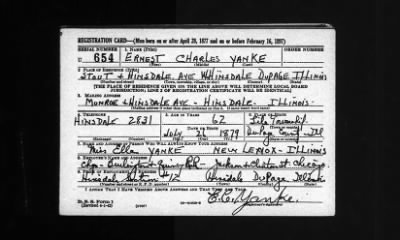 REGISTRATION CARD—(Men born on or after April 28, 1877 and on or before February 16, 1897)
SERIAL NUMBER 1. NAME (Print) ORDER NUMBER
U 654 ERNEST CHARLES YANKE
(First) (Middle) (Last)
2. PLACE OF RESIDENCE (Print)
STOUT + HINSDALE AVE HINSDALE DUPAGE ILLINOIS
[THE PLACE OF RESIDENCE GIVEN ON THE LINE ABOVE WILL DETERMINE LOCAL BOARD
JURISDICTION; LINE 2 OF REGISTRATION CERTIFICATE WILL BE IDENTICAL]
3. MAILING ADDRESS
MONROE + HINSDALE AVE - HINSDALE. ILLINOIS.
4. TELEPHONE 5. AGE IN YEARS 6. PLACE OF BIRTH
62 Township
HINSDALE 2831 JULY 26 1879 DuPage Ill
7. NAME AND ADDRESS OF PERSON WHO WILL ALWAYS KNOW YOUR ADDRESS
Miss Ella YANKE NEW LENOX - ILLINOIS
8. EMPLOYER'S NAME AND ADDRESS
Burlington + Quincy R.R. - Chicago.
9. PLACE OF EMPLOYMENT OR BUSINESS
Hinsdale Hinsdale DuPage
I AFFIRM THAT I HAVE VERIFIED ABOVE ANSWERS AND THAT THEY ARE TRUE.
D. S. S. Form 1
E.C. Yanke.